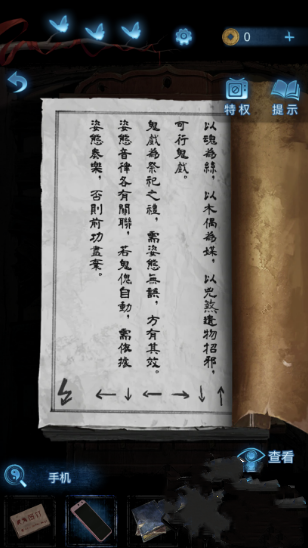 0
特权
提示
以魂為絲，以木偶為媒，以兇煞遺物招邪，
可行鬼戲。
鬼戲為祭祀之禮，需姿態無誤，方有其效。
姿態音律各有關聯，若鬼傀自動，需依據
姿態奏樂，否則前功盡棄。
↑↓→←↓←
查看
手机